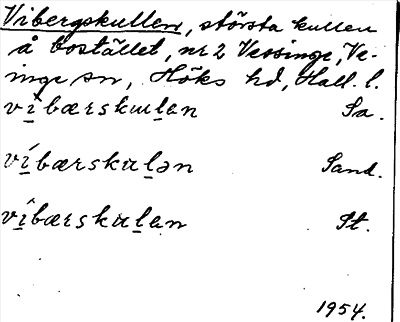 Vibergskullen, största kullen
å bostället, nr 2 Vessinge, Ve-
inge sn, Höks hd, Hall. l.
vîbærskuulan Sa.
víbærskulən Sand.
vîbærskulan St.
1954.